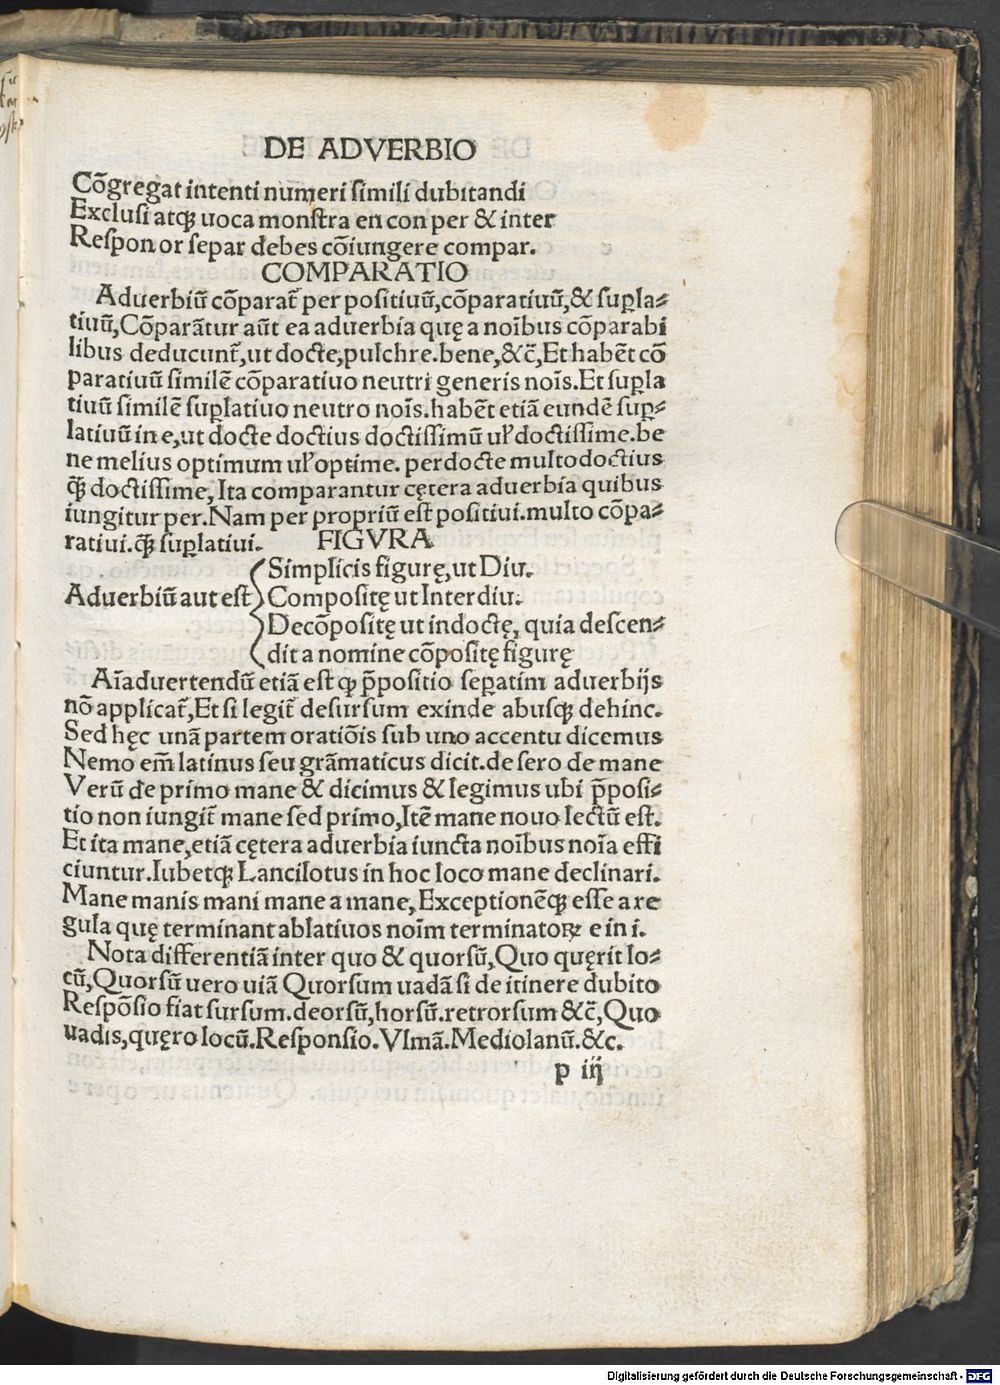 DE ADVERBIO
Cõgregat intenti numeri simili dubitandi
Exclusi atqꝫ uoca monstra en con per & inter
Respon or separ debes cõiungere compar.
COMPARATIO
Aduerbiũ cõparat̃ per positiuũ,cõparatiuũ,& suꝑla⸗
tiuũ,Cõparãtur aũt ea aduerbia quę a noĩbus cõparabi
libus deducunt̃,ut docte,pulchre.bene,&c̃,Et habẽt cõ
paratiuũ similẽ cõparatiuo neutri generis noĩs.Et suꝑla
tiuũ similẽ suꝑlatiuo neutro noĩs.habẽt etiã eundẽ suꝑ⸗
latiuũ in e,ut docte doctius doctissimũ uꝉ doctissime.be
ne melius optimum uꝉ optime. perdocte multo doctius
qꝫ̃ doctissime, Ita comparantur cętera aduerbia quibus
iungitur per.Nam per propriũ est positiui.multo cõpa⸗
ratiui.qꝫ̃ suꝑlatiui. FIGVRA
Simplicis figurę,ut Diu.
Aduerbiũ aut est Compositę ut Interdiu.
Decõpositę ut indoctę, quia descen⸗
dit a nomine cõpositę figurę
Aĩaduertendũ etiã est ꝙ p̃positio seꝑatim aduerbijs
nõ applicat̃,Et si legit̃ desursum exinde abusqꝫ dehinc.
Sed hęc unã partem oratiõis sub uno accentu dicemus
Nemo em̃ latinus seu grãmaticus dicit.de sero de mane
Verũ de primo mane & dicimus & legimus ubi p̃posi⸗
tio non iungit̃ mane sed primo,Itẽ mane nouo lectũ est.
Et ita mane,etiã cętera aduerbia iuncta noĩbus noĩa effi
ciuntur.Iubetqꝫ Lancilotus in hoc loco mane declinari.
Mane manis mani mane a mane,Exceptionẽqꝫ esse a re
gula quę terminant ablatiuos noĩm terminatoꝝ e in i.
Nota differentiã inter quo & quorsũ,Quo quęrit lo⸗
cũ,Quorsũ uero uiã Quorsum uadã si de itinere dubito
Respõsio fiat sursum.deorsũ,horsũ.retrorsum &c̃,Quo
uadis,quęro locũ.Responsio.Vlmã.Mediolanũ.&c.
p iij
Digitalisierung gefördert durch die Deutsche Forschungsgemeinschaft - DFG